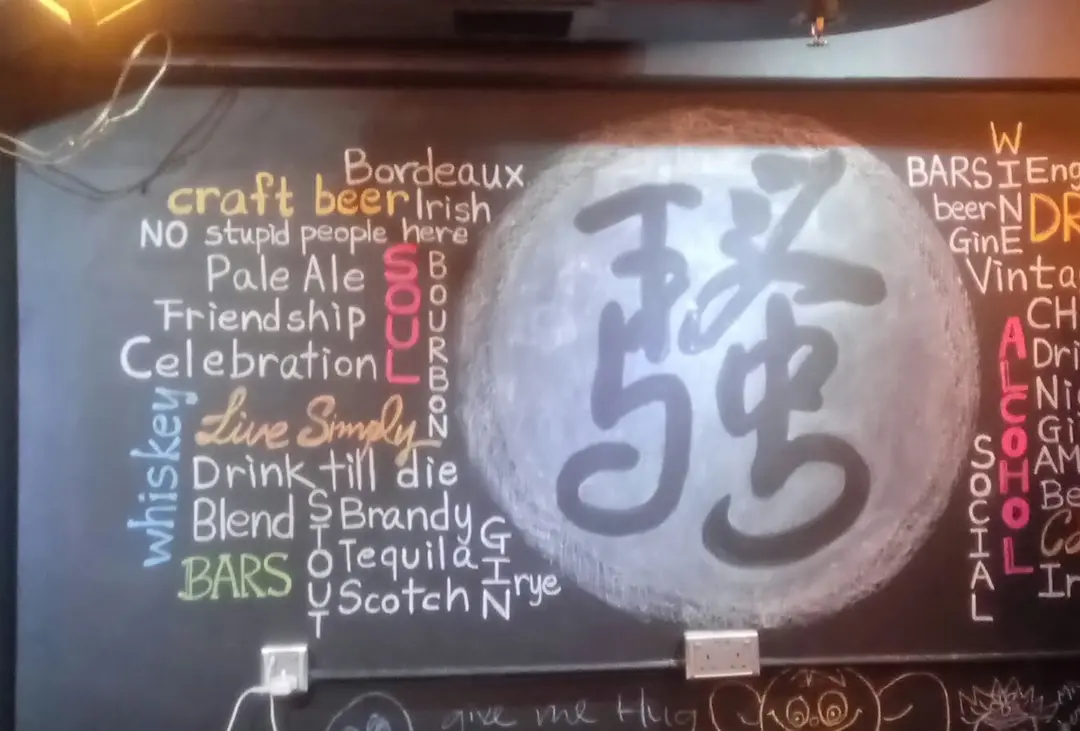 Bordeaux
craft beer Irish
NO stupid people here
Pale Ale
SOUL
BOURBON
Friendship
Celebration
whiskey
Live Simply
Drink till die
Blend
STOUT
Brandy
GIN
Tequila
BARS
Scotch
rye
騷
WINE
BARS Eng
beer DR
Gin
Vinta
CH
ALCOHOL
Dri
Ni
Gi
SOCIAL
AM
Be
Ca
Ir
give me Hug